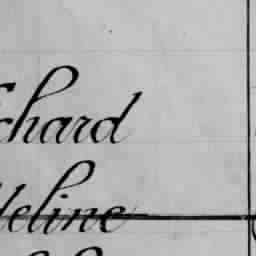 chard
eline